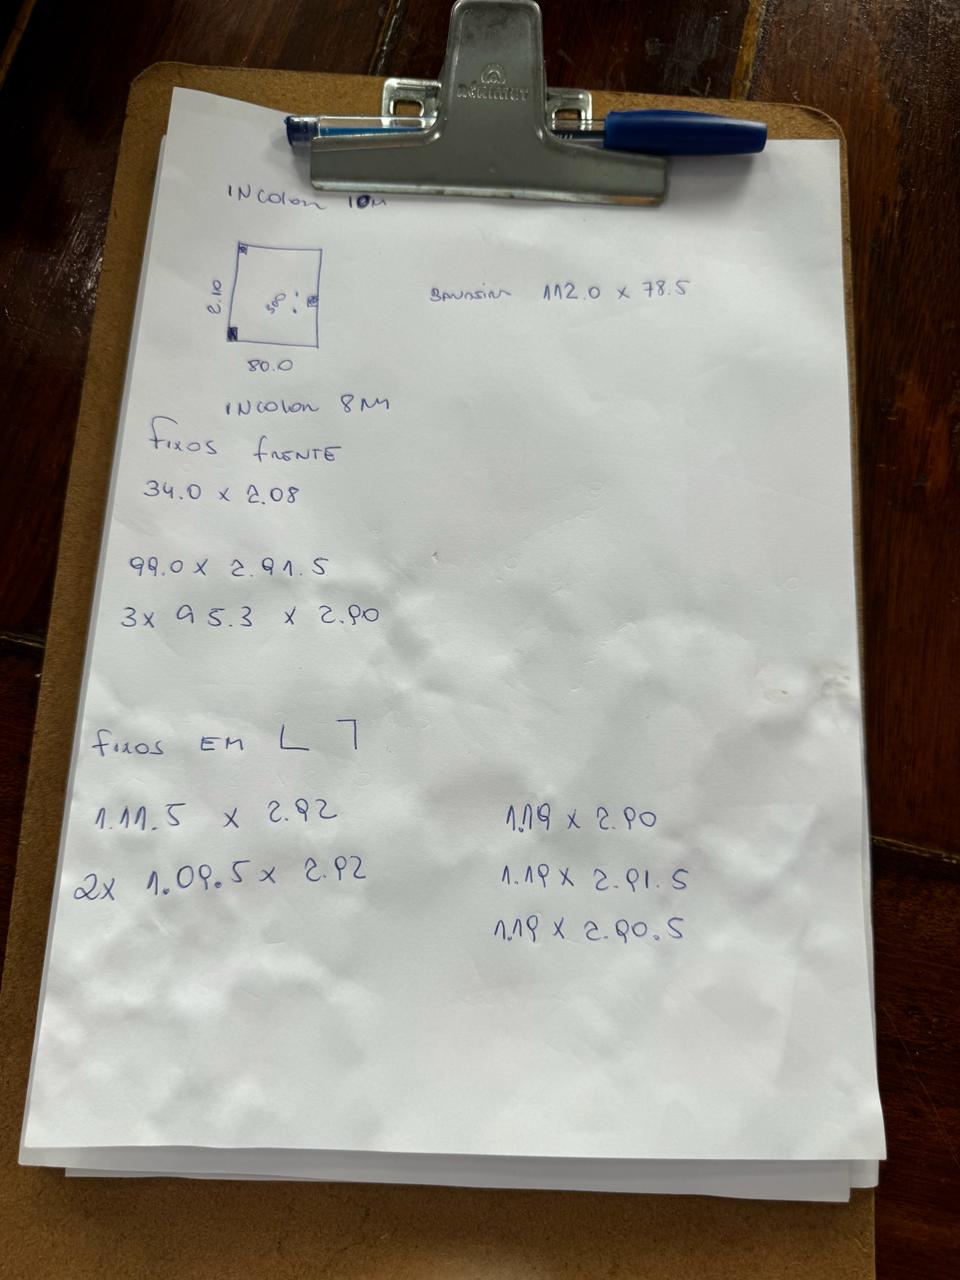 INCOLOR 10M
2.10
300
80.0
BANDEIRA 112.0 x 78.5
INCOLOR 8M
FIXOS FRENTE
34.0 x 2.08
99.0 x 2.91.5
3x 95.3 x 2.90
FIXOS EM L ⅂
1.11.5 x 2.92
2x 1.09.5 x 2.92
1.19 x 2.90
1.19 x 2.91.5
1.19 x 2.90.5